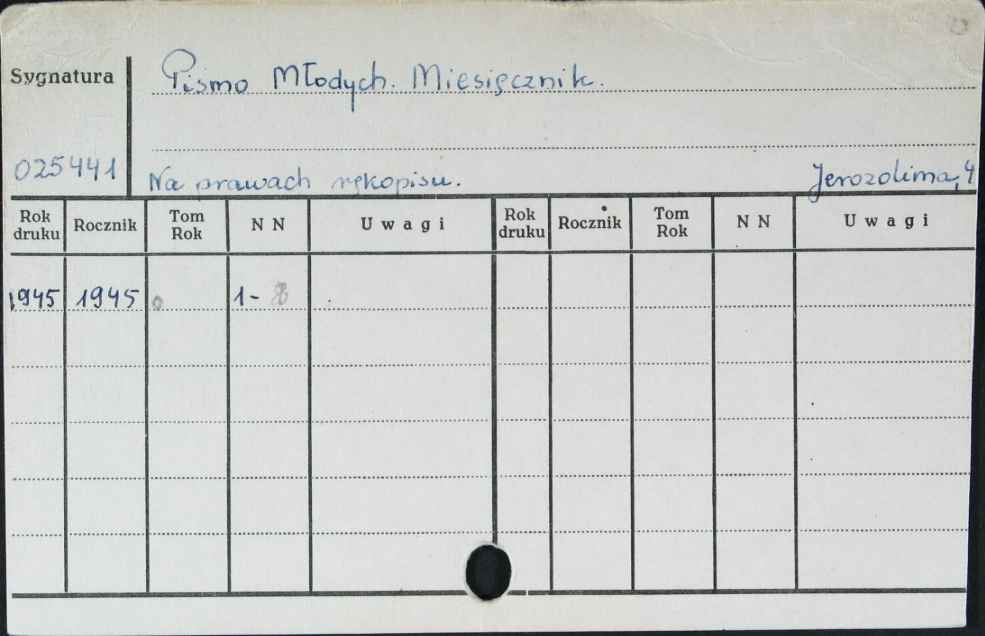 Pismo Młodych. Miesięcznik.
Sygnatura
025441
Na prawach rękopisu. Jerozolima, 4
Rok druku Rocznik Tom Rok N N Uwagi Rok druku Rocznik Tom Rok N N Uwagi
1945 1945 1-8